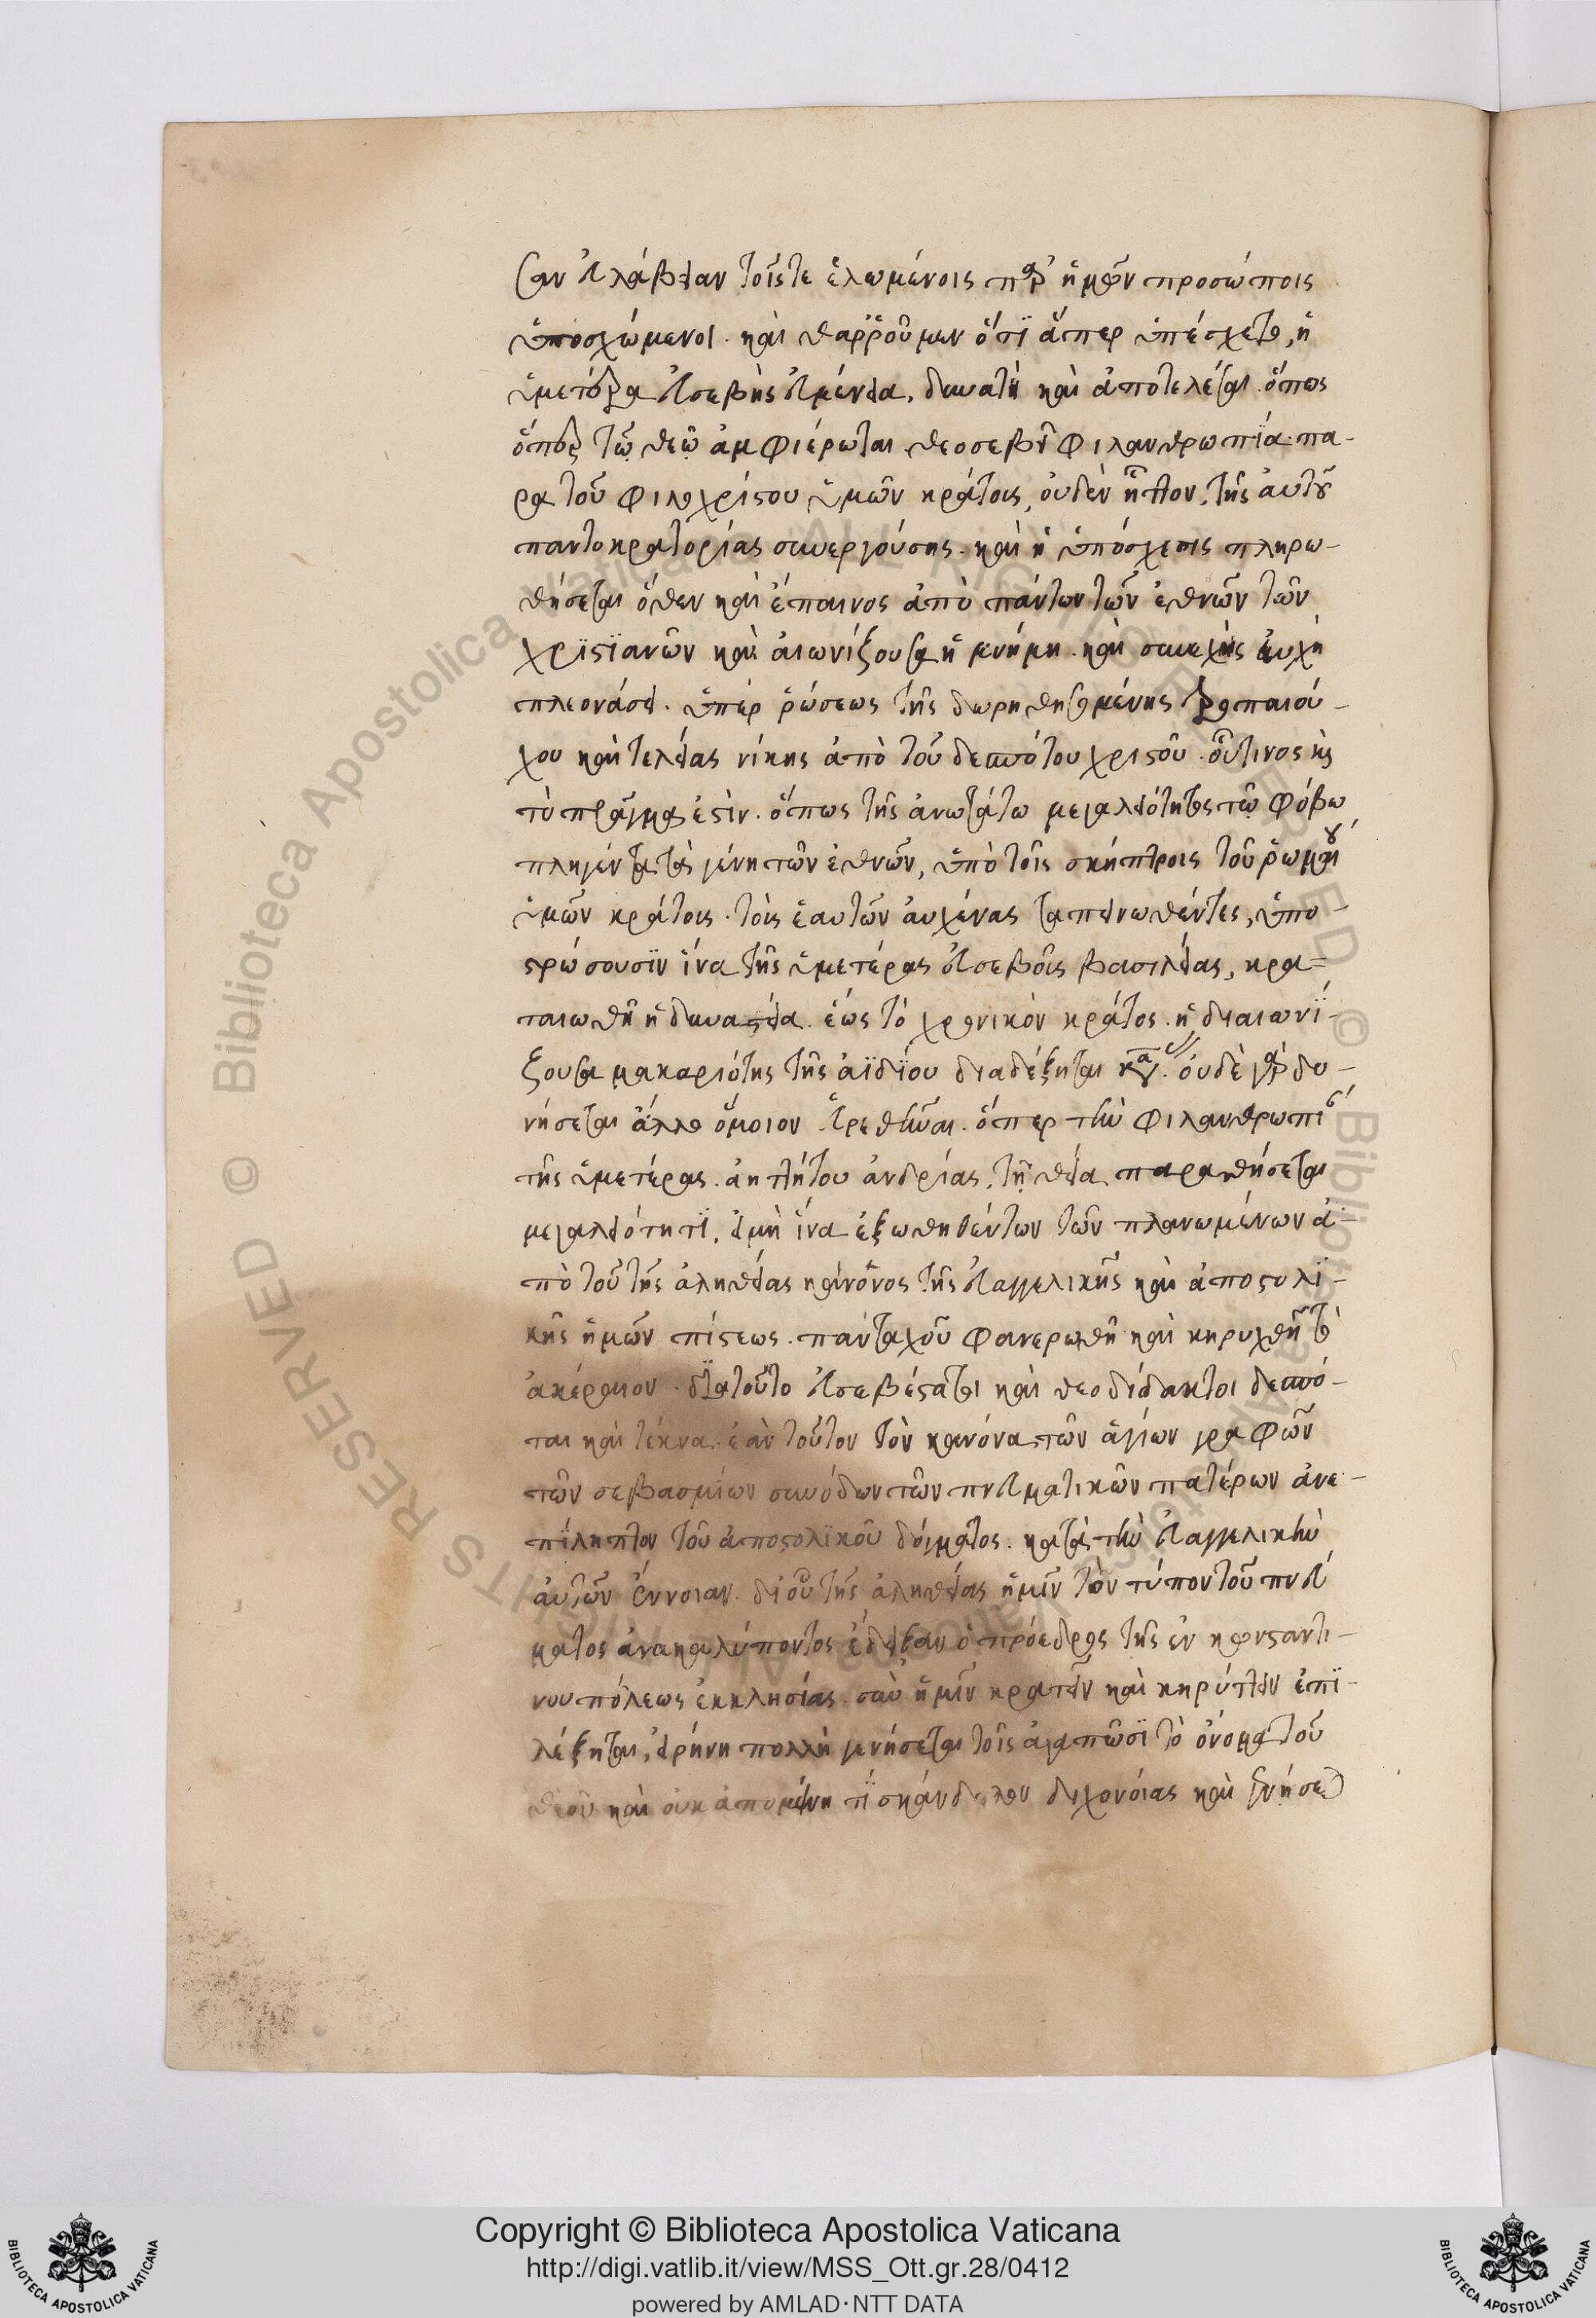 σαν εὐλάβειαν τοῖς τε ἑλωμένοις παρ' ἡμῶν προσώποις
ὑποσχώμενοι. καὶ θαρροῦμεν ὅτϊ ἅπερ ὑπέσχετο, ἡ
ὑμετέρα εὐσεβὴς εὐμένεια, δυνατὴ καὶ ἀποτελέσαι. ὅπως
ὅπερ τῷ θεῷ ἀμφιέρωται θεοσεβεῖ φιλανθρωπϊα πα-
ρα τοῦ φιλοχρίστου ὑμῶν κράτους, οὐδὲν ἧττον, τῆς αὐτοῦ
παντοκρατορίας συνεργούσης. καὶ ἡ ὑπόσχεσις πληρω-
θήσεται ὅθεν καὶ ἔπαινος ἀπὸ πάντων τῶν ἐθνῶν τῶν
χρϊστϊανῶν καὶ αἰωνίζουσα ἡ μνήμη. καὶ συνεχὴς εὐχὴ
πλεονάσει. ὑπὲρ ῥώσεως τῆς δωρηθησομένης τροπαιού-
χου καὶ τελείας νίκης ἀπὸ τοῦ δεσπότου χριστοῦ. οὗτινος καὶ
τὸ πρᾶγμα ἐστὶν. ὅπως τῆς ἀνωτάτω μεγαλειότητος τῷ φόβω
πληγέντα τὰ γένη τῶν ἐθνῶν, ὑπὸ τοῖς σκήπτροις τοῦ ῥωμαίου
ὑμῶν κράτους. τοὺς ἑαυτῶν αὐχένας ταπεινωθέντες, ὑπο-
στρώσουσϊν ἵνα τῆς ὑμετέρας εὐσεβοῦς βασιλείας, κρα-
ταιωθῆ ἡ δυναστεία. ἕως τὸ χρονικὸν κράτος. ἡ διαιωνϊ-
ζουσα μακαριότης τῆς ἀϊδίου διαδέξηται. οὐδὲ γὰρ δυ-
νήσεται ἄλλο ὅμοιον εὑρεθῆναι. ὅπερ τὴν φιλανθρωπί
τῆς ὑμετέρας. ἀηττήτου ἀνδρίας, τῇ θεία παραθήσεται
μεγαλειότητϊ, εἰμὴ ἵνα ἐξωθηθέντων τῶν πλανωμένων ἀ-
πὸ τοῦ τῆς ἀληθείας κανόνος τῆς εὐαγγελικῆς καὶ ἀποστολϊ-
κῆς ἡμῶν πίστεως. πανταχοῦ φανερωθῆ καὶ κηρυχθῆ τὸ
ἀκέραιον. δϊατοῦτο εὐσεβέστατοι καὶ θεοδίδακτοι δεσπό-
ται καὶ τέκνα. ἐὰν τοῦτον τὸν κανόνα τῶν ἁγίων γραφῶν
τῶν σεβασμίων συνόδων τῶν πνευματικῶν πατέρων ἀνε-
πΐληπτον τοῦ ἀποστολϊκοῦ δόγματος. κατὰ τὴν εὐαγγελικὴν
αὐτῶν ἔννοιαν. δι' οὗ τῆς ἀληθείας ἡμῖν τὸν τύπον τοῦ πνεύ
ματος ἀνακαλύποντος ἐδειξαν ὁ πρόεδρος τῆς ἐν κωνσταντι-
νουπόλεως ἐκκλησίας. σὺν ἡμῖν κρατεῖν καὶ κηρύττειν ἐπϊ-
λέξηται, εἰρήνη πολλὴ γενήσεται τοῖς ἀγαπῶσϊ τὸ ὀνομα τοῦ
θεοῦ καὶ οὐκ ἀπομείνη τϊ σκάνδαλον διχονόιας καὶ γενήσεται
Copyright © Biblioteca Apostolica Vaticana
http://digi.vatlib.it/view/MSS_Ott.gr.28/0412
powered by AMLAD·NTT DATA